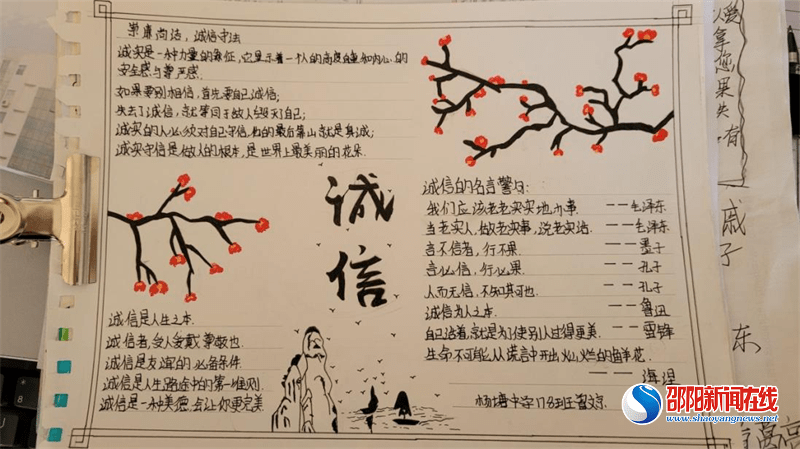 崇廉尚洁，诚信守法
诚实是一种力量的象征，它显示着一个人的高度自重和内心的
安全感与尊严感.
如果要别人相信，首先要自己诚信；
失去了诚信，就等同于敌人毁灭了自己；
诚实的人必须对自己守信，他的最后靠山就是真诚；
诚实守信是做人的根本，是世界上最美丽的花朵.
诚信
诚信是人生之本.
诚信者，受人爱戴尊敬也.
诚信是友谊的必备条件.
诚信是人生路途中的第一准则.
诚信是一种美德，会让你更完美.
诚信的名言警句：
我们应该老老实实地办事. ——毛泽东
当老实人，做老实事，说老实话. ——毛泽东
言不信者，行不果. ——墨子
言必信，行必果. ——孔子
人而无信，不知其可也. ——孔子
诚信为人之本. ——鲁迅
自己活着，就是为了使别人过得更美. ——雷锋
生命不可能从谎言中开出灿烂的鲜花.
——海涅
杨塘中学178班王
邵阳新闻在线
www.shaoyangnews.net